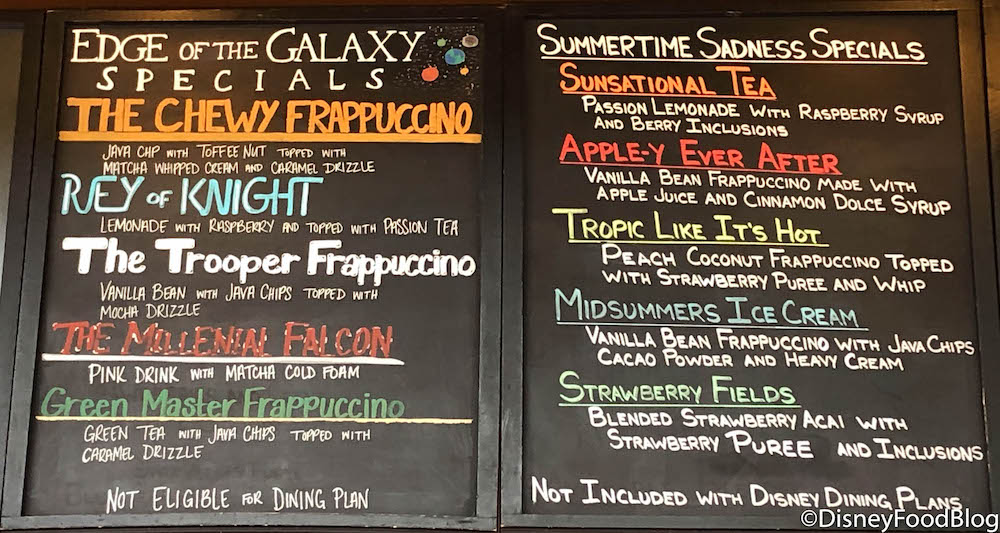 EDGE OF THE GALAXY
SPECIALS
THE CHEWY FRAPPUCCINO
JAVA CHIP WITH TOFFEE NUT TOPPED WITH
MATCHA WHIPPED CREAM AND CARAMEL DRIZZLE
REY OF KNIGHT
LEMONADE WITH RASPBERRY AND TOPPED WITH PASSION TEA
The Trooper Frappuccino
VANILLA BEAN WITH JAVA CHIPS TOPPED WITH
MOCHA DRIZZLE
THE MILLENIAL FALCON
PINK DRINK WITH MATCHA COLD FOAM
Green Master Frappuccino
GREEN TEA WITH JAVA CHIPS TOPPED WITH
CARAMEL DRIZZLE
NOT ELIGIBLE FOR DINING PLAN
SUMMERTIME SADNESS SPECIALS
SUNSATIONAL TEA
PASSION LEMONADE WITH RASPBERRY SYRUP
AND BERRY INCLUSIONS
APPLE-Y EVER AFTER
VANILLA BEAN FRAPPUCCINO MADE WITH
APPLE JUICE AND CINNAMON DOLCE SYRUP
TROPIC LIKE IT'S HOT
PEACH COCONUT FRAPPUCCINO TOPPED
WITH STRAWBERRY PUREE AND WHIP
MIDSUMMERS ICE CREAM
VANILLA BEAN FRAPPUCCINO WITH JAVA CHIPS
CACAO POWDER AND HEAVY CREAM
STRAWBERRY FIELDS
BLENDED STRAWBERRY ACAI WITH
STRAWBERRY PUREE AND INCLUSIONS
NOT INCLUDED WITH DISNEY DINING PLANS
©DisneyFoodBlog